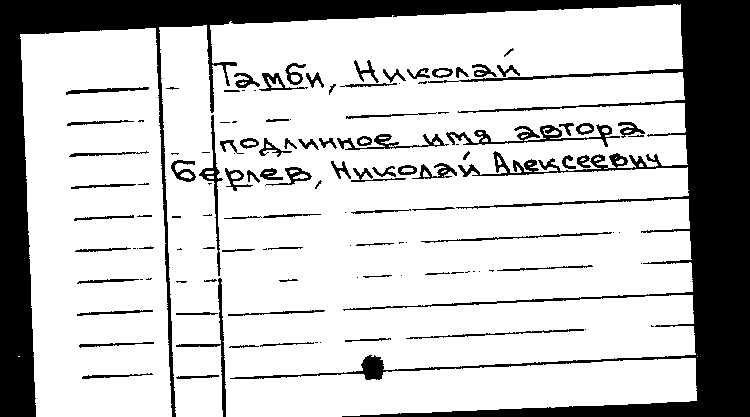 Тамби, Николай
подлинное имя автора
Берлев, Николай Алексеевич